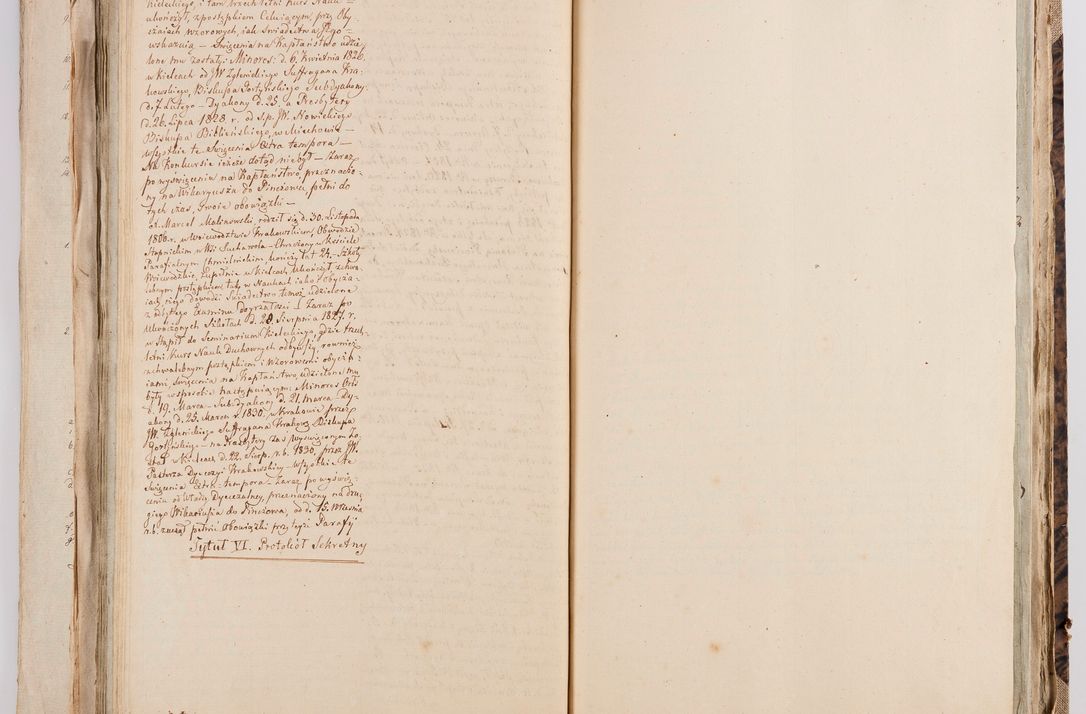 Kieleckiego, i tam trzech letni Kurs Nauk
ukończył, z postępkiem Celuiącym, przy Oby-
czaiach wzorowych, iak Świadectwa Jego
wskazuią — Święcenia na Kapłaństwo udzie
lone mu zostały: Minores: d. 6. Kwietnia 1826.
w Kielcach od JW Zglenickiego Suffragana Kra-
kowskiego, Biskupa Gortyńskiego Subdyakony
d. 7. Lutego — Dyakony d. 25. a Presbytery
d. 26. Lipca 1828. r. od S.p. JW. Nowickiego
Biskupa Bibleńskiego, w Miechowie —
wszystkie te Święcenia Extra tempora —
Na Konkursie ieszcze dotąd niebył — Zaraz
po wyświęceniu na Kapłaństwo, przeznaczo-
ny na Wikaryusza do Pinczowa, pełni do
tych czas, swoie obowiązki —
Marcel Malinowski, rodził się d. 30. Listopada
1806. r. w Woiewodztwie Krakowskiem, Obwodzie
Stopnickim, w Wsi Sucharola — Chrzczony w Kościele
Parafialnym liczy lat 24. — Szkoły
Woiewodzkie, Zupełnie w Kielcach, Ukończył z chwa-
lebnym postępkiem tak, w Naukach iako i obycza-
iach, czego dowodzi Świadectwo temuż udzielone
z odbytego Examinu doyrzałości — Zaraz po
ukończonych Szkołach d. 28 Sierpnia 1827. r.
wstąpił do Seminarium Kieleckiego, gdzie trzech
letni Kurs Nauk Duchownych odbywszy, rownież
z chwalebnym postępkiem i wzorowemi obycza-
iami, Święcenia na Kapłaństwo udzielone mu
były w sposobie następuiącym: Minores
d. 19. Marca — Subdyakony d. 21. marca Dy-
akony d. 25. Marca r. 1830. w Krakowie przez
JW. Zglenickiego Suffragana Krakow. Biskupa
Gortyńskiego — na Presbytery zas wyswięconym zo-
stał w Kielcach d. 22. Sierp. r.b. 1830. przez JW.
Pasterza Dyecezyi Krakowskiey — wszystkie te
Święcenia Extra tempora — Zaraz po wyświę-
ceniu od Władzy Dyecezalney, przeznaczony na dru-
giego Wikariusza do Pinczowa, od d. 15. Września
r.b. zaczął pełnić Obowiązki przy teyże Parafij
Tytuł VI. Protokół Sekretny